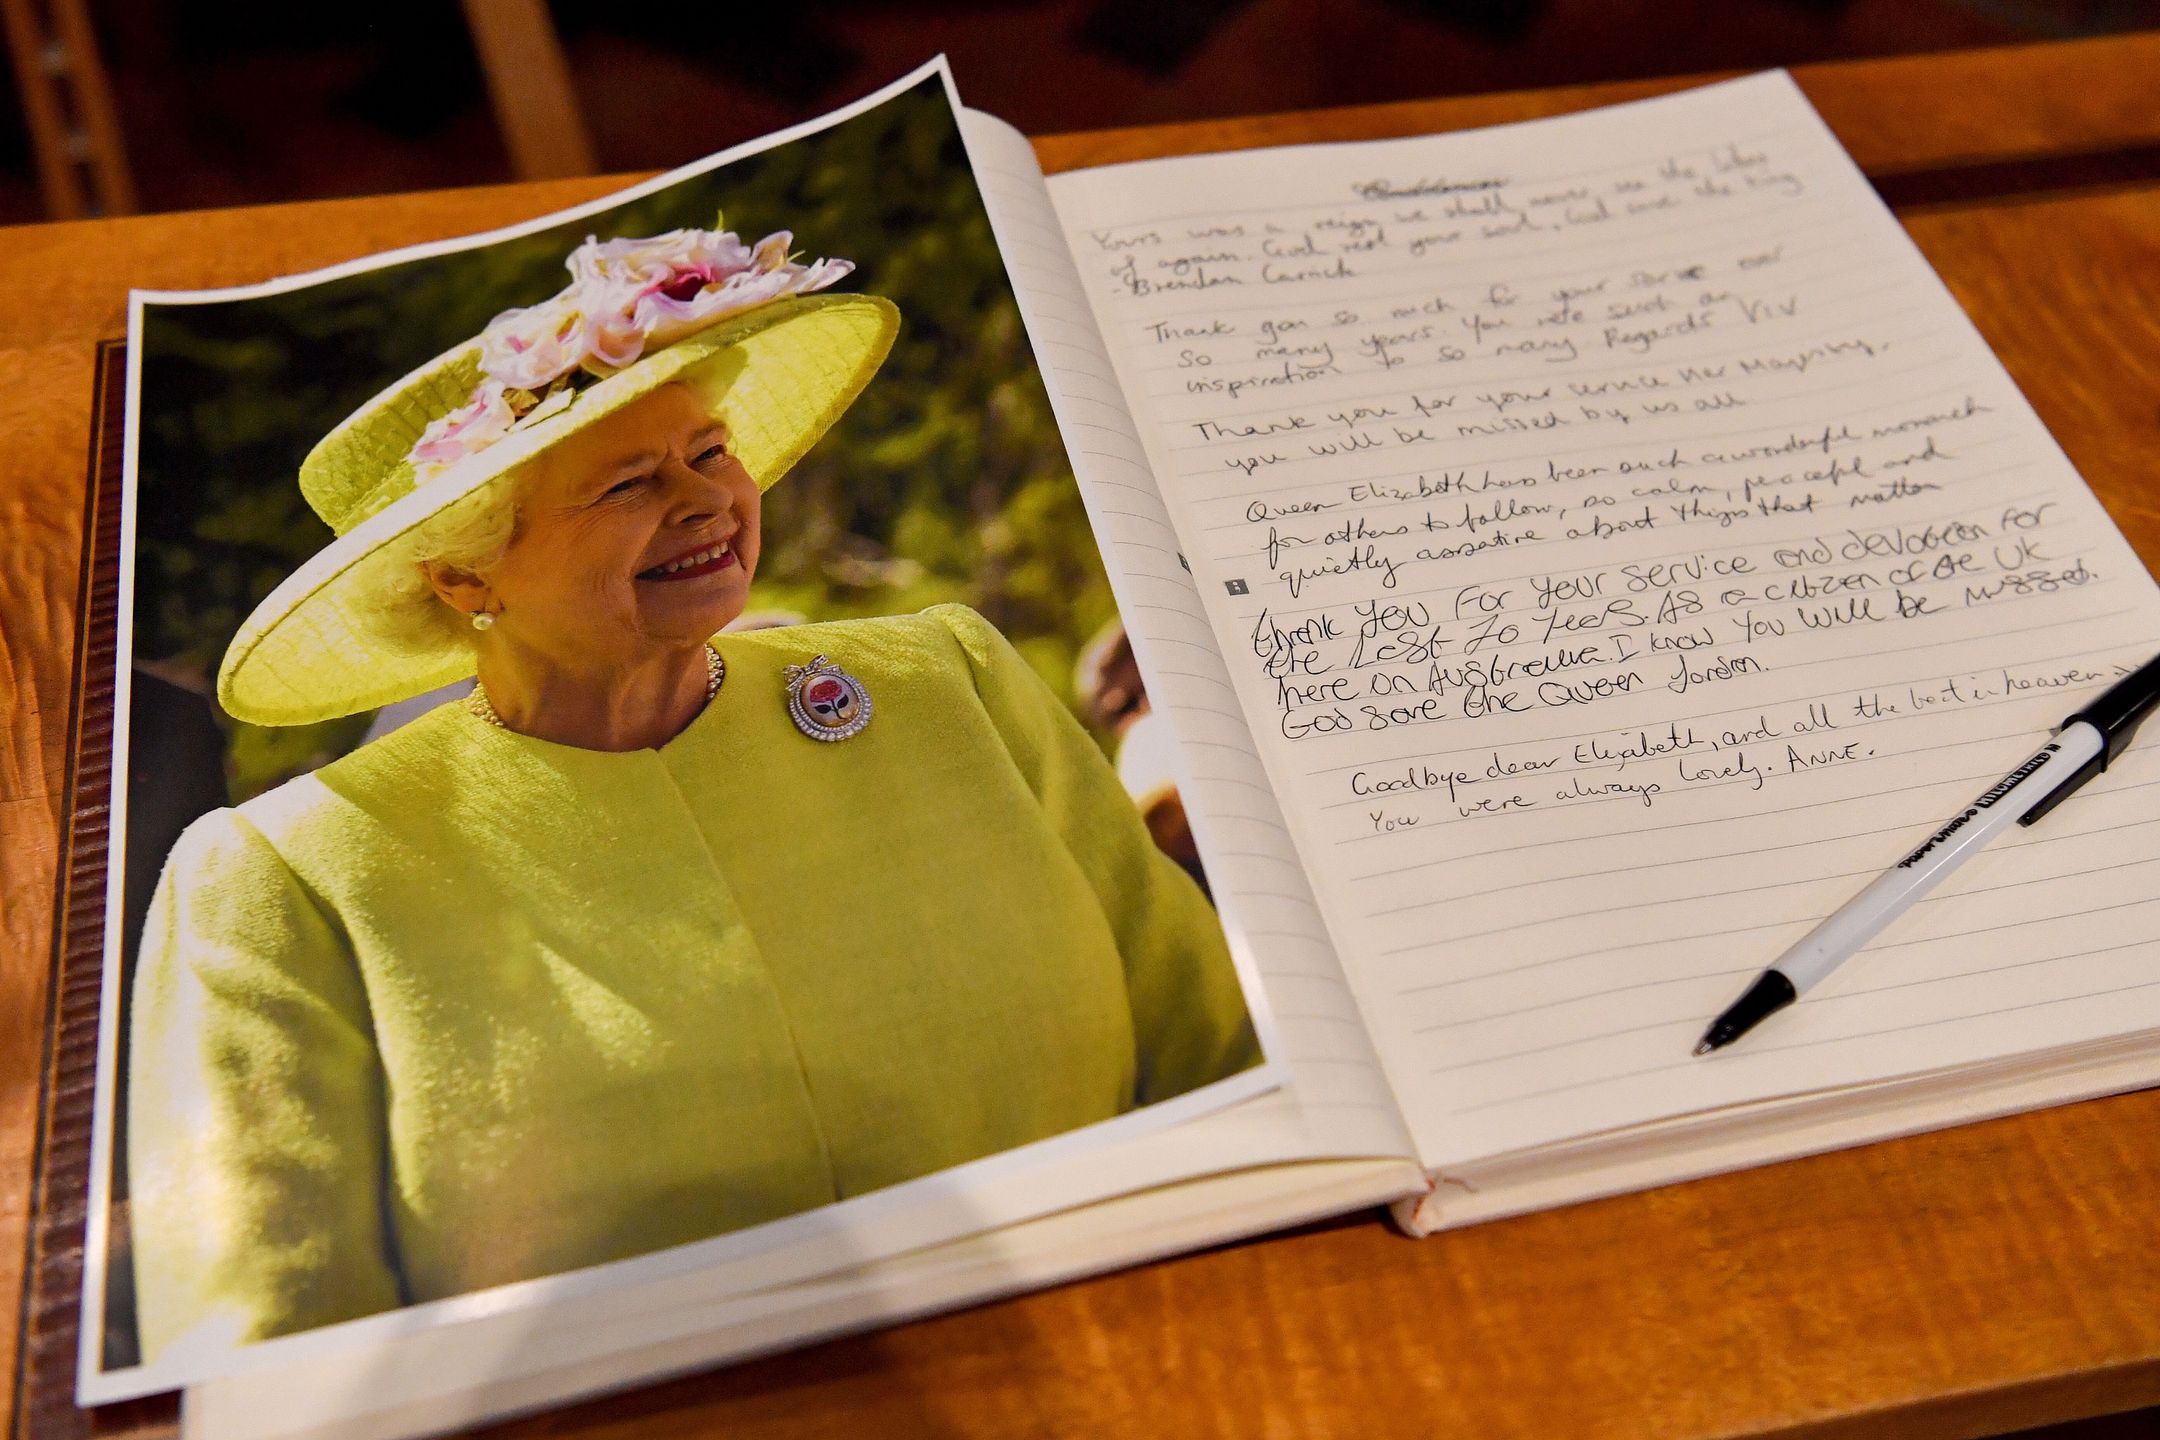 Yours was a reign we shall never see the likes
of again. God rest your soul, God save the King
- Brendan Carrick
Thank you so much for your service over
so many years. You were such an
inspiration to so many Regards Viv
Thank you for your service Her Maj
you will be missed by us all
Queen Elizabeth has been such a wonderful monarch
for others to follow, so calm, peaceful and
quietly assertive about things that matter
thank You For Your service and devotion For
the Last 70 Years. As a citizen of the UK
here in Australia. I know You Will be missed.
God save the Queen
Goodbye dear Elizabeth, and all the best in heaven.
You were always lovely. ANNE.
PaperMate KILOMETRICO M